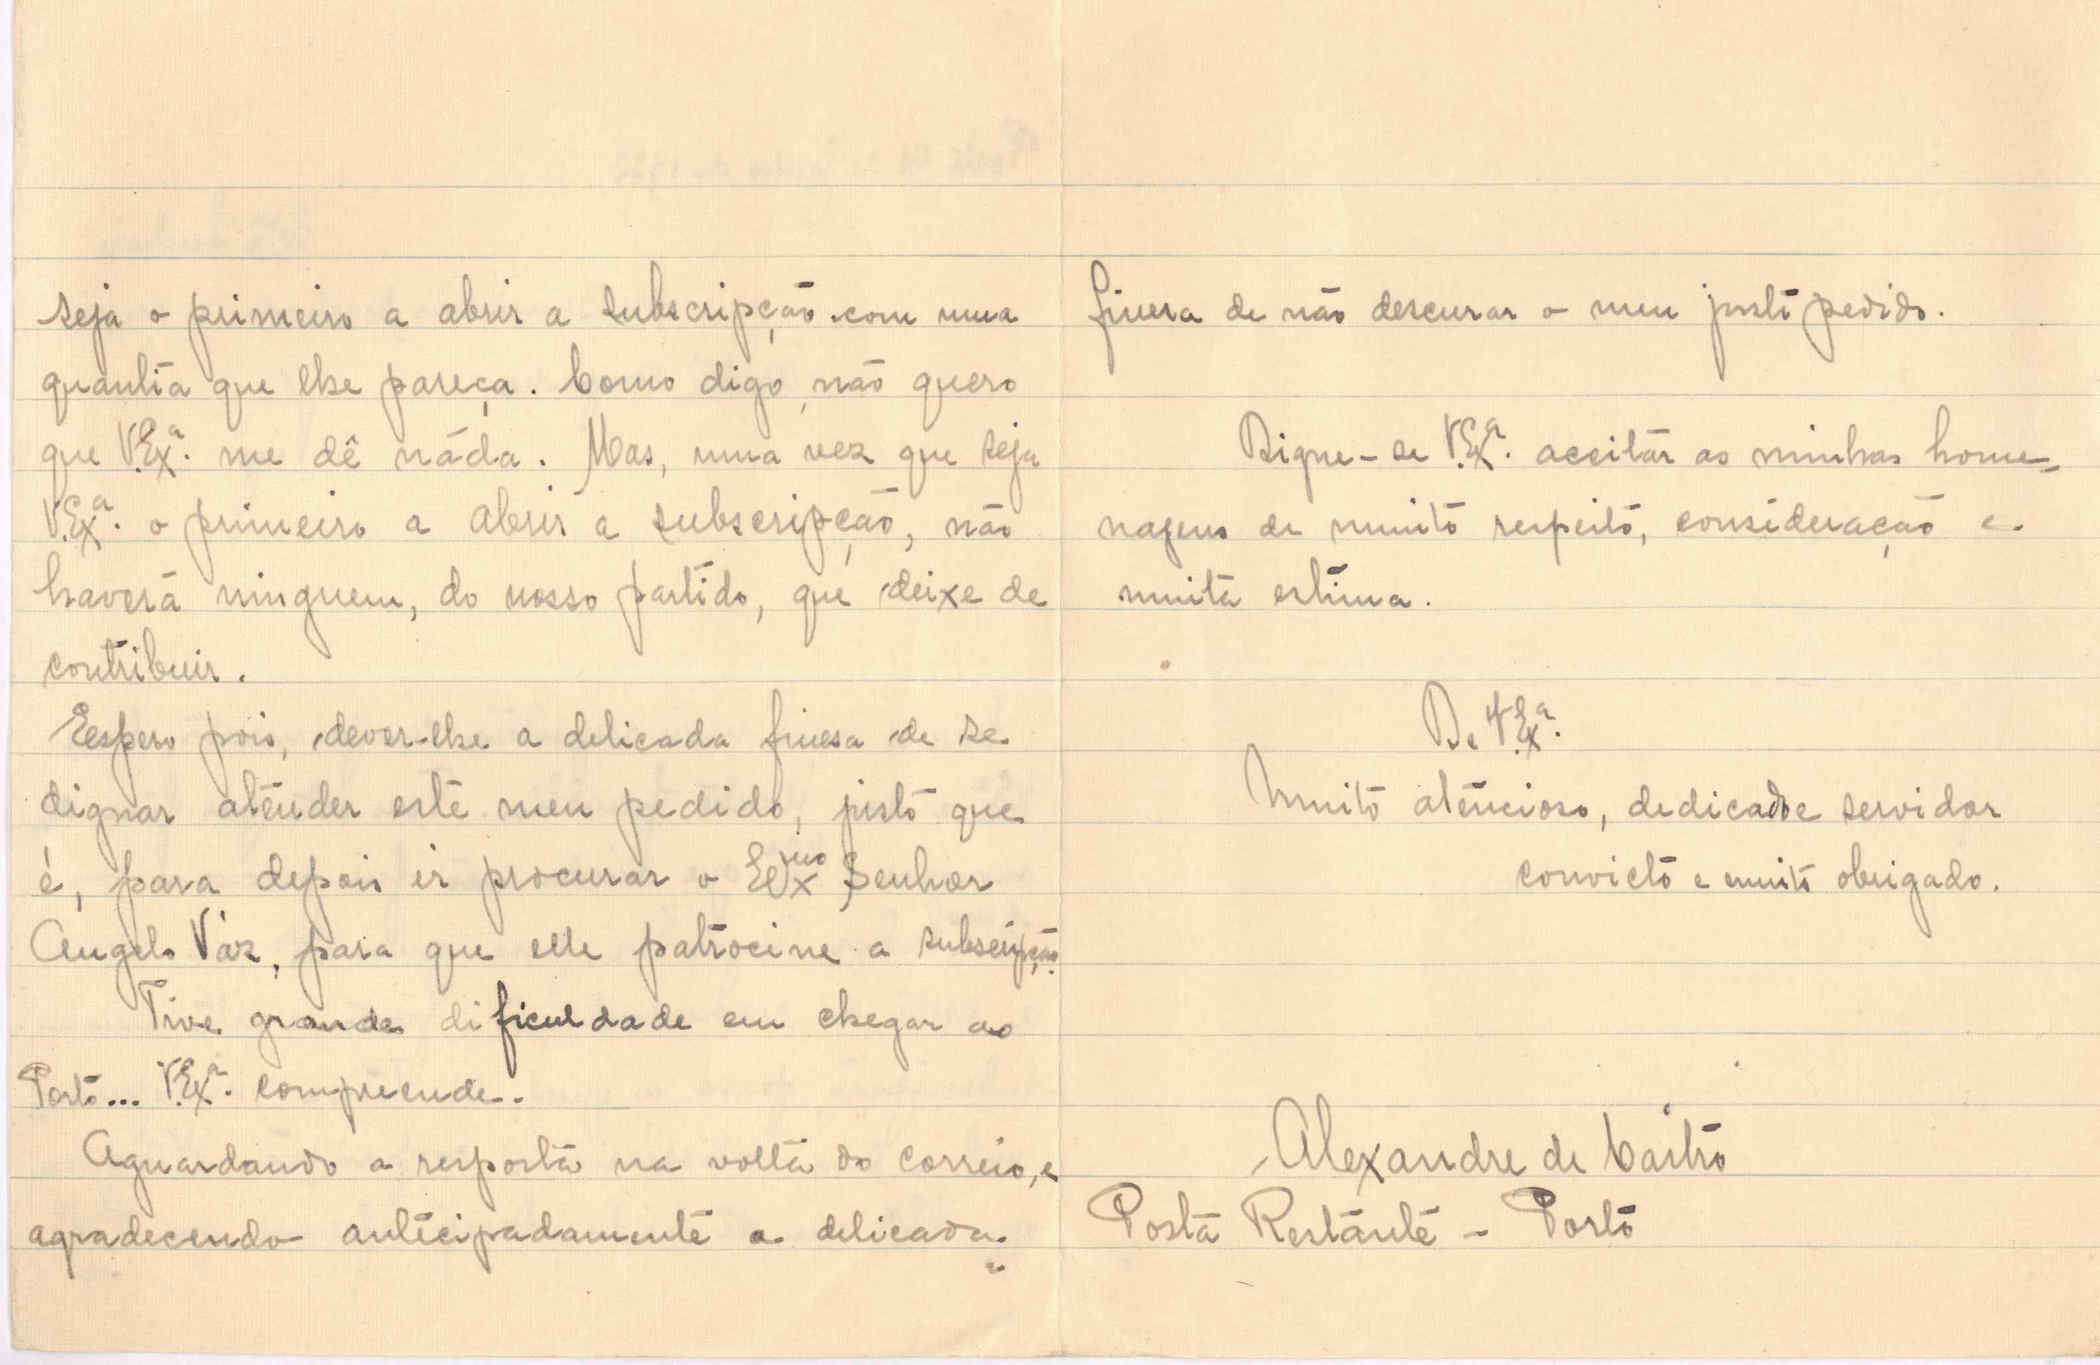 seja o primeiro a abrir a subscripção com uma
quantia que lhe pareça. Como digo, não quero
que V.Exª. me dê náda. Mas, uma vez que seja
V.Exª. o primeiro a abrir a subscripção, não
haverá ninguem, do nosso partido, que deixe de
contribuir.
Espero pois, dever-lhe a delicada finesa de se
dignar atender este meu pedido, justo que
é, para depois ir procurar o Exmo Senhor
Angelo Váz, para que elle patrocine a subscripção.
Tive grande dificuldade em chegar ao
Porto... V.Exª. compreende.
Aguardando a resposta na volta do correio, e
agradecendo antecipadamente a delicada
finesa de não descurar o meu justo pedido.
Digne-se V.Exª. aceitar as minhas home-
nagens de muito respeito, consideração e
muita estima.
De V.Exª.
Muito atencioso, dedicado e servidor
convicto e muito obrigado.
Alexandre de Castro
Posta Restante - Porto